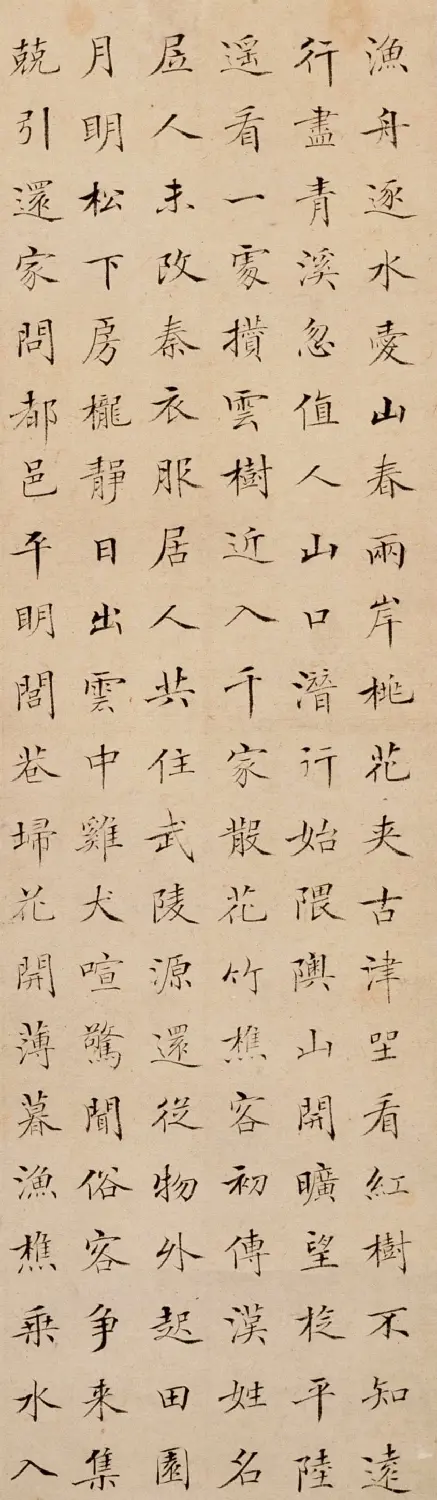 漁舟逐水愛山春兩岸桃花夾古津坐看紅樹不知遠
行盡青溪忽值人山口潛行始隈隩山開曠望旋平陸
遥看一處攢雲樹近入千家散花竹樵客初傳漢姓名
居人未改秦衣服居人共住武陵源還從物外起田園
月明松下房櫳靜日出雲中雞犬喧驚聞俗客争来集
競引還家問都邑平明閭巷埽花開薄暮漁樵乘水入